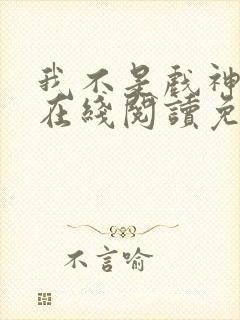 我不是戏神
在綫閱讀免
不言喻